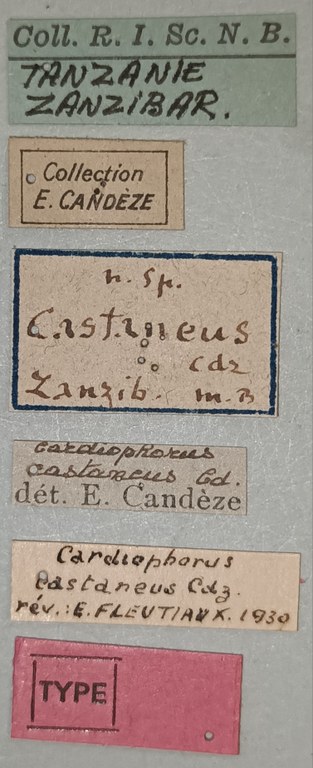 Coll. R. I. Sc. N. B.
TANZANIE
ZANZIBAR.
Collection
E. CANDÈZE
n. Sp.
Castaneus
Cdz
Zanzib. m.B
Cardiophorus
castaneus Cd.
dét. E. Candèze
Cardiophorus
castaneus Cdz.
rév.: E. FLEUTIAUX. 1930
TYPE